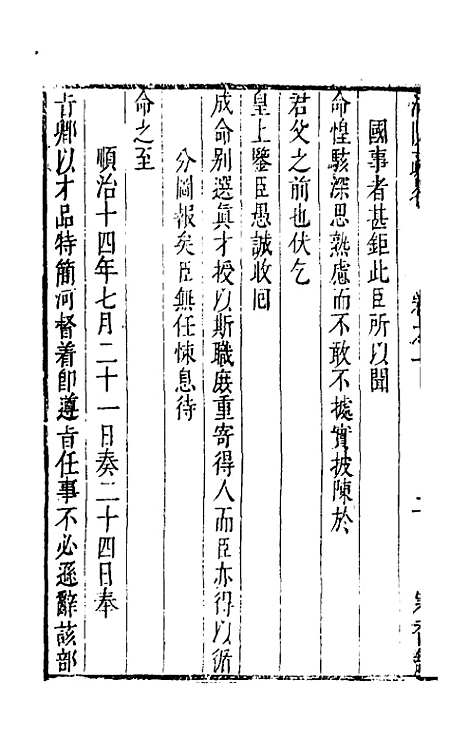 國事者甚鉅此臣所以聞
命惶駭深思熟慮而不敢不據實披陳於
君父之前也伏乞
皇上鑒臣愚誠收回
成命别選眞才授以斯職庻重寄得人而臣亦得以循
分圖報矣臣無任悚息待
命之至
順治十四年七月二十一日奏二十四日奉
㫖卿以才品特簡河督着卽遵㫖任事不必遜辭該部